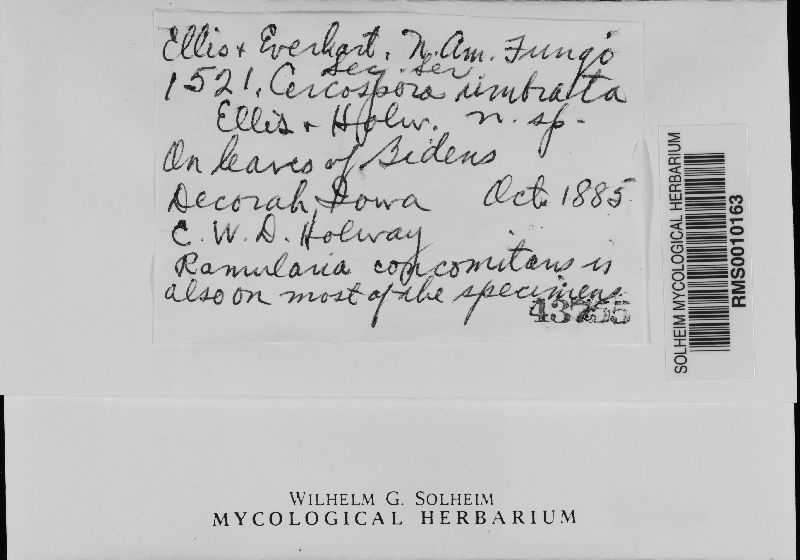 Ellis & Everhart. N. Am. Fungi
Sec. Ser
1521. Cercospora umbrata
Ellis & Holw. n. sp.
On leaves of Bidens
Decorah, Iowa Oct. 1885
E. W. D. Holway
Ramularia concomitans is
also on most of the specimens.
43755
SOLHEIM MYCOLOGICAL HERBARIUM
RMS0010163
WILHELM G. SOLHEIM
MYCOLOGICAL HERBARIUM